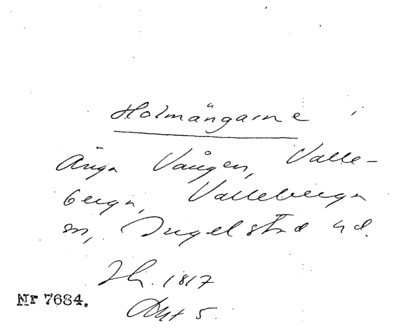 Holmängarne i
Änga Vången, Valle-
berga, Valleberga
sn, Ingelstad hd.
Sk. 1817
Nr 7684.
Akt 5.